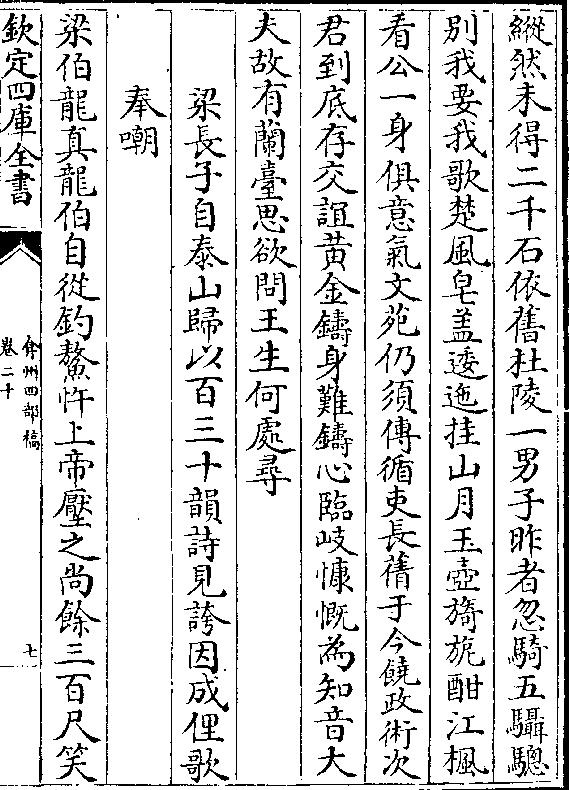 縱然未得二千石依舊杜陵一男子昨者忽騎五驄驄
別我要我歌楚風皂盖逶迤挂山月玉壺旖旎酣江楓
看公一身俱意氣文苑仍須傳循吏長蒨于今饒政術次
君到底存交誼黃金鑄身難鑄心臨岐慷慨為知音大
夫故有蘭臺思欲問王生何處尋
梁長子自泰山歸以百三十韻詩見誇因成俚歌
奉嘲
梁伯龍真龍伯自從釣鰲忤上帝壓之尚餘三百尺笑
欽定四庫全書
弇州四部稿
卷二十
七